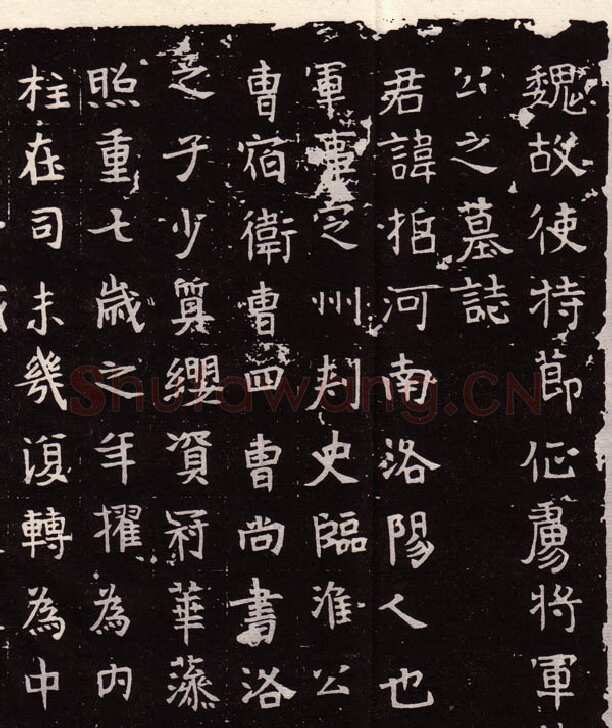 魏故使持節征虜将軍
公之墓誌
君諱河南洛陽人也
軍事定州刺史臨淮公
曹宿衛曹四曹尚書洛
之子少纓資冠華藻
照重七歲之年擢為内
柱在司未幾復轉為中
Shufawang.CN